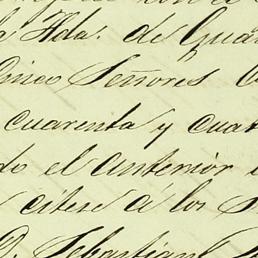 la Hda. de Gua
Cinco Señores
cuarenta y cuat
do el anterior
citese á los S
D. Sebastian